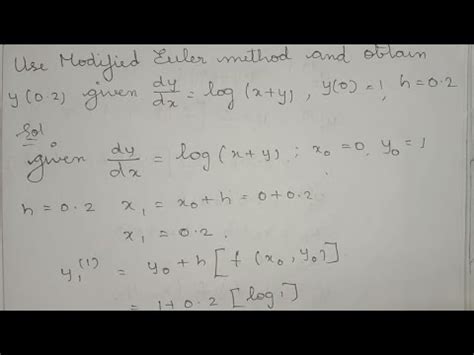 Use Modified Euler method and obtain
y(0.2) given dy/dx = log(x+y), y(0)=1, h=0.2
Sol
given dy/dx = log(x+y); x₀=0, y₀=1
h=0.2 x₁ = x₀+h = 0+0.2
x₁ = 0.2.
y₁⁽¹⁾ = y₀+h[f(x₀,y₀)]
= 1+0.2[log 1]